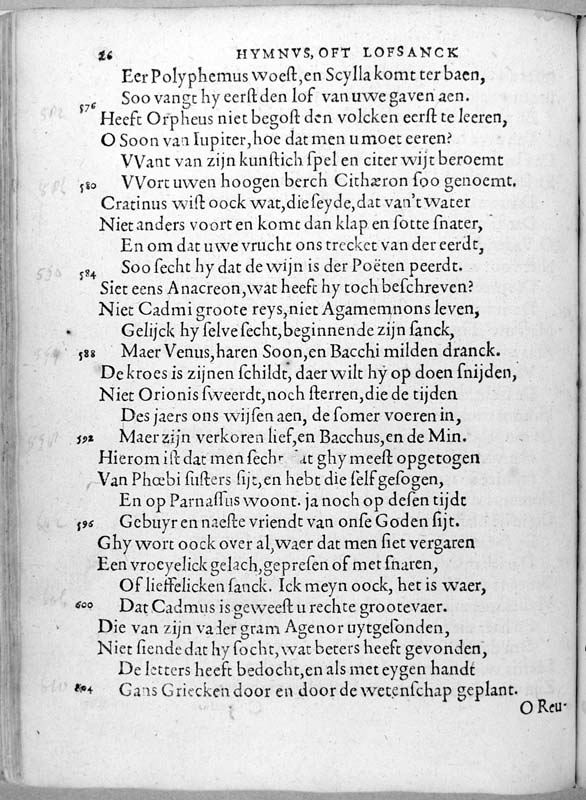 26 HYMNVS, OFT LOFSANCK
Eer Polyphemus woeſt, en Scylla komt ter baen,
Soo vangt hy eerſt den lof van uwe gaven aen.
576 Heeft Orpheus niet begoſt den volcken eerſt te leeren,
O Soon van Iupiter, hoe dat men u moet eeren?
VVant van zijn kunſtich ſpel en citer wijt beroemt
580 VVort uwen hoogen berch Cithæron ſoo genoemt.
Cratinus wiſt oock wat, die ſeyde, dat van't water
Niet anders voort en komt dan klap en ſotte ſnater,
En om dat uwe vrucht ons trecket van der eerdt,
584 Soo ſecht hy dat de wijn is der Poëten peerdt.
Siet eens Anacreon, wat heeft hy toch beſchreven?
Niet Cadmi groote reys, niet Agamemnons leven,
Gelijck hy ſelve ſecht, beginnende zijn ſanck,
588 Maer Venus, haren Soon, en Bacchi milden dranck.
De kroes is zijnen ſchildt, daer wilt hy op doen ſnijden,
Niet Orionis ſweerdt, noch ſterren, die de tijden
Des jaers ons wijſen aen, de ſomer voeren in,
592 Maer zijn verkoren lief, en Bacchus, en de Min.
Hierom iſt dat men ſecht at ghy meeſt opgetogen
Van Phœbi ſuſters ſijt, en hebt die ſelf geſogen,
En op Parnaſſus woont. ja noch op deſen tijdt
596 Gebuyr en naeſte vriendt van onſe Goden ſijt.
Ghy wort oock over al, waer dat men ſiet vergaren
Een vroeyelick gelach, gepreſen of met ſnaren,
Of lieffelicken ſanck. Ick meyn oock, het is waer,
600 Dat Cadmus is geweeſt u rechte grootevaer.
Die van zijn vader gram Agenor uytgeſonden,
Niet ſiende dat hy ſocht, wat beters heeft gevonden,
De letters heeft bedocht, en als met eygen handt
604 Gans Griecken door en door de wetenſchap geplant.
O Reu-